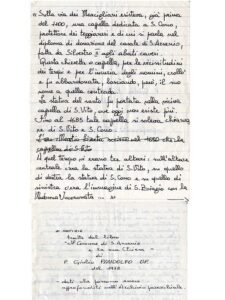 « Sulla via dei Marsigliani esisteva, già prima
del 1400, una cappella dedicata a S. Cono,
protettore dei teggianesi e di cui si parla nel
diploma di donazione del casale di S. Arsenio,
fatta da Silvestro I agli abati cavesi.
Questa chiesetta o cappella, per le vicissitudini
dei tempi e per l'incuria degli uomini, crollò
e fu abbandonata, lasciando, però, il suo
nome a quella contrada.
La statua del santo fu portata nella vicina
cappella di S. Vito, che oggi non esiste più.
Fino al 1685 tale cappella si soleva chiamare
di S. Vito e S. Cono.
cappella di S. Vito
A quel tempo vi erano tre altari: sull'altare
centrale era la statua di S. Vito, su quello
di destra la statua di S. Cono e su quello di
sinistra era l'immagine di S. Biagio con la
Madonna Incoronata ... »
* NOTIZIE
tratte dal libro
"Il Comune di S. Arsenio
e la sua Chiesa"
di
P. Egidio PANDOLFO OP.
dati che possono essere
approfonditi nell'Archivio parrocchiale